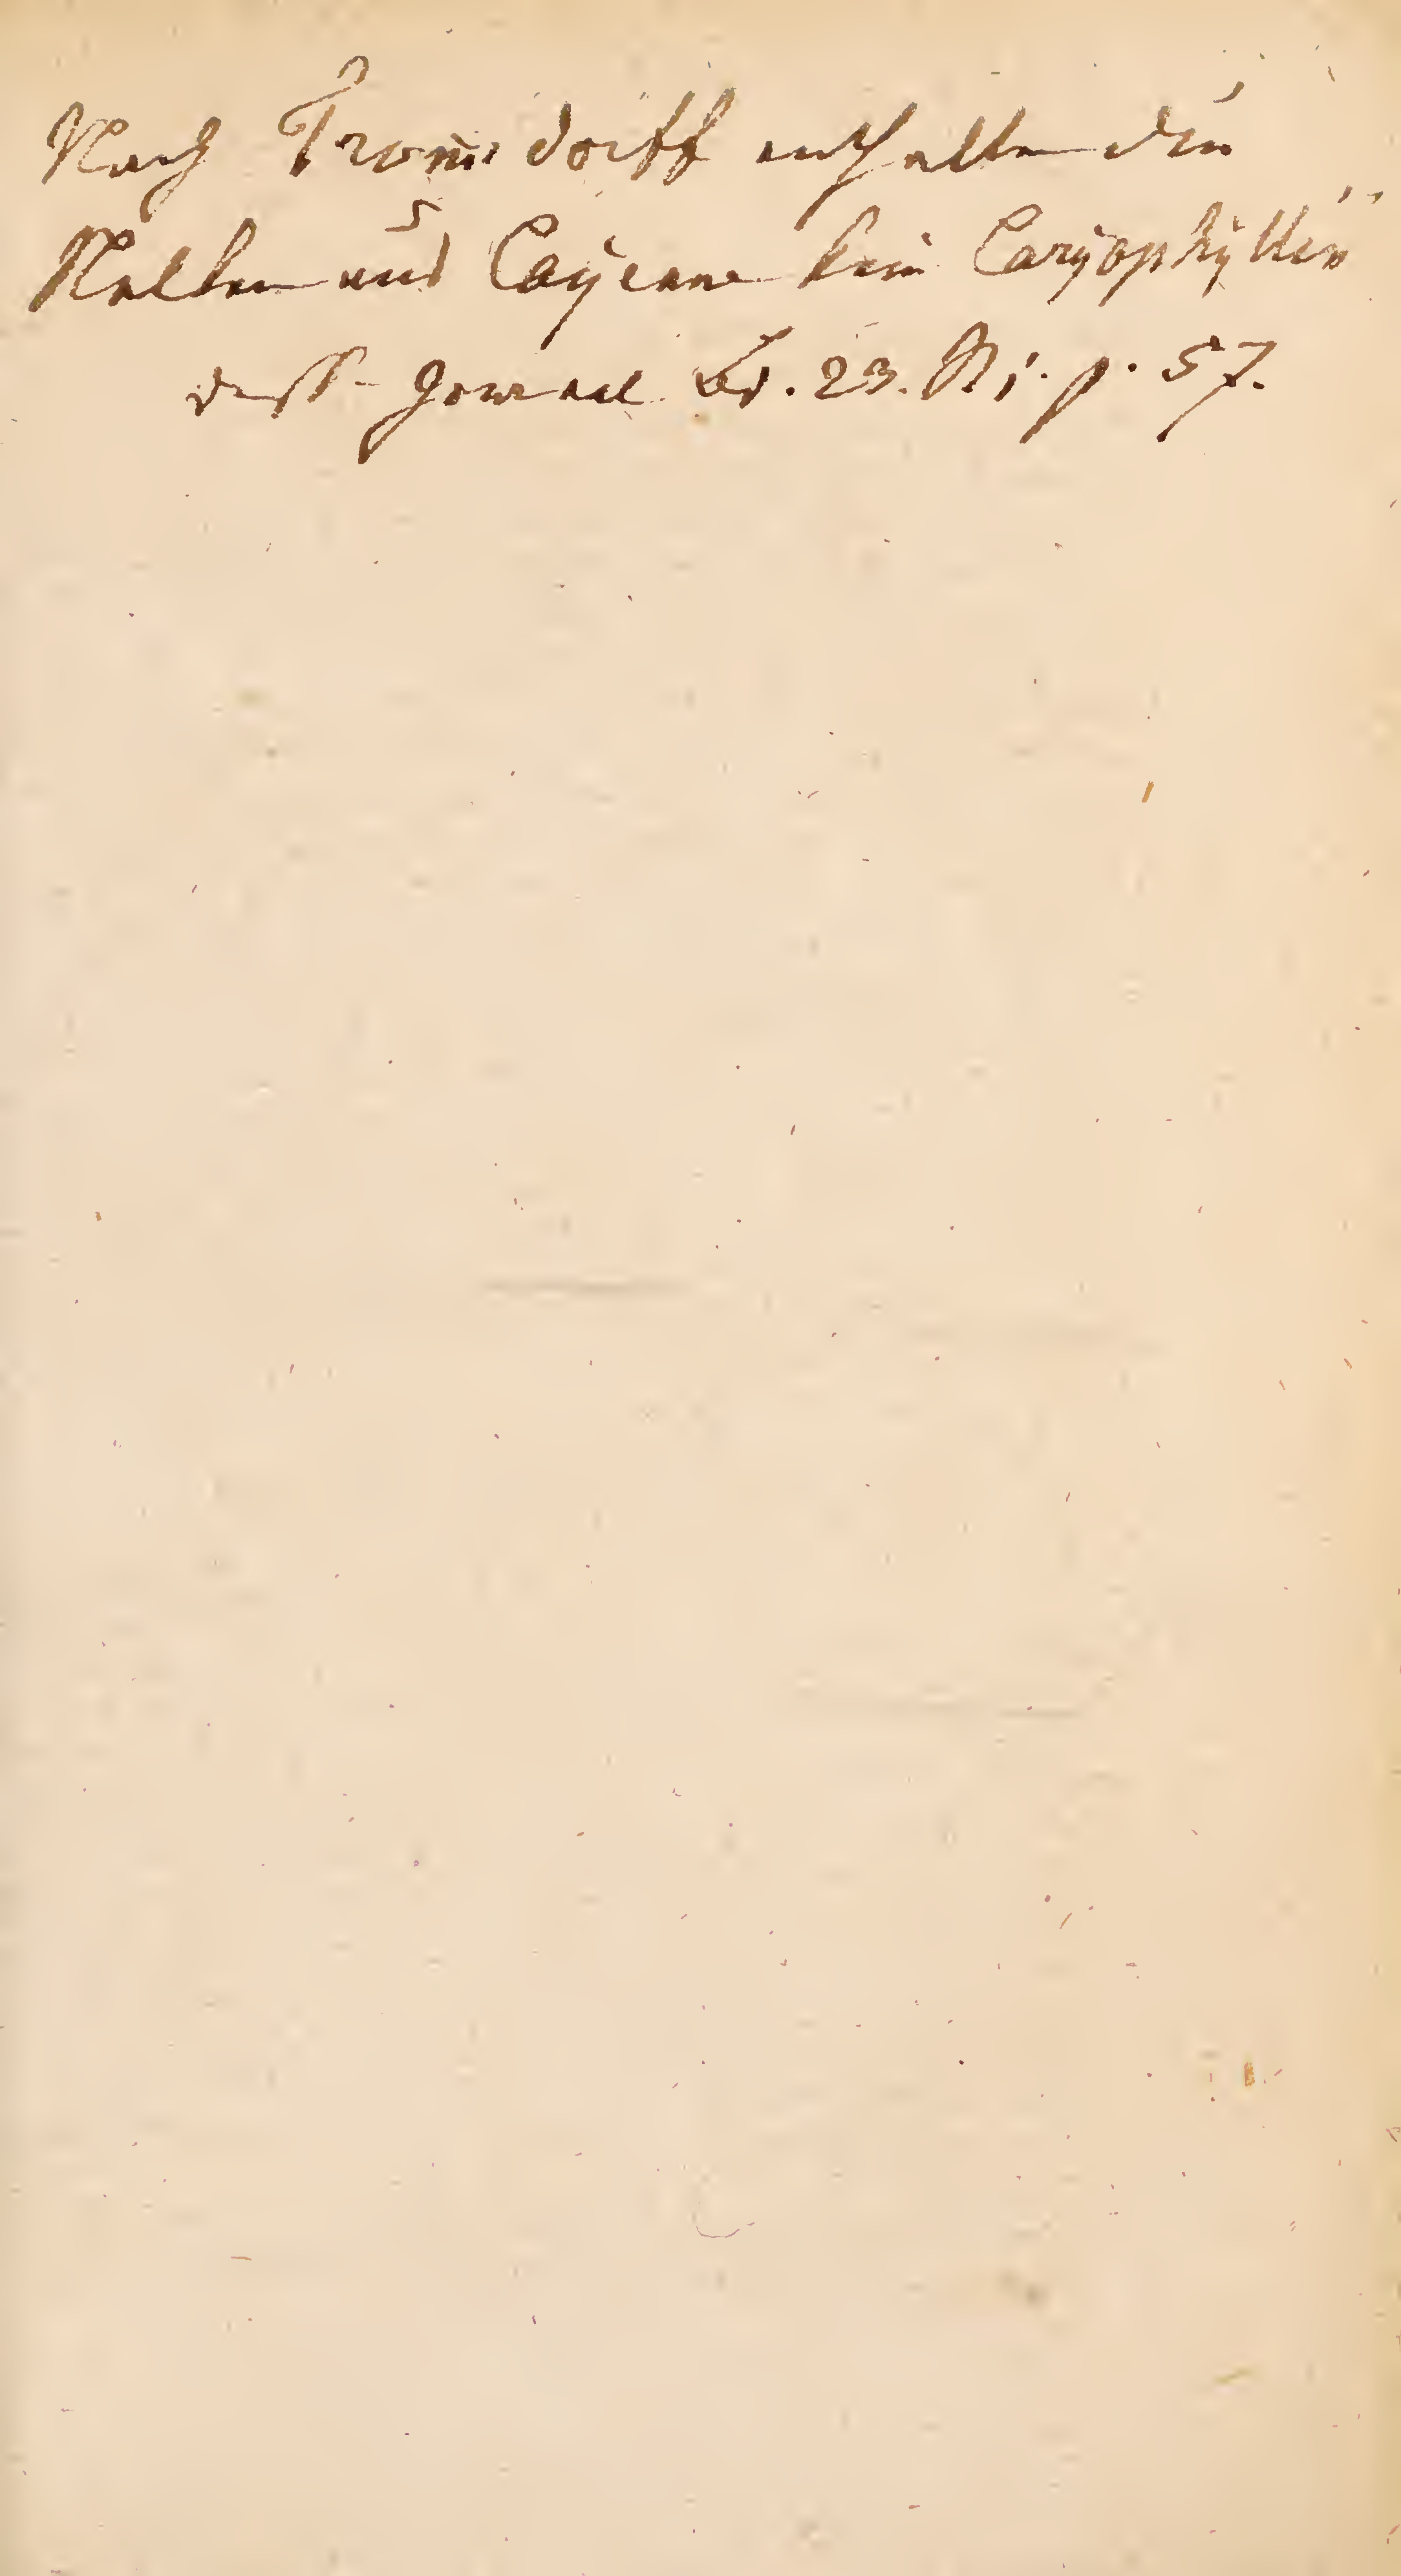 Nach Tromsdorff enthalten die
Nelken aus Cayenne kein Caryophyllin
dess. Journal Bd. 23. St. 1. p. 57.